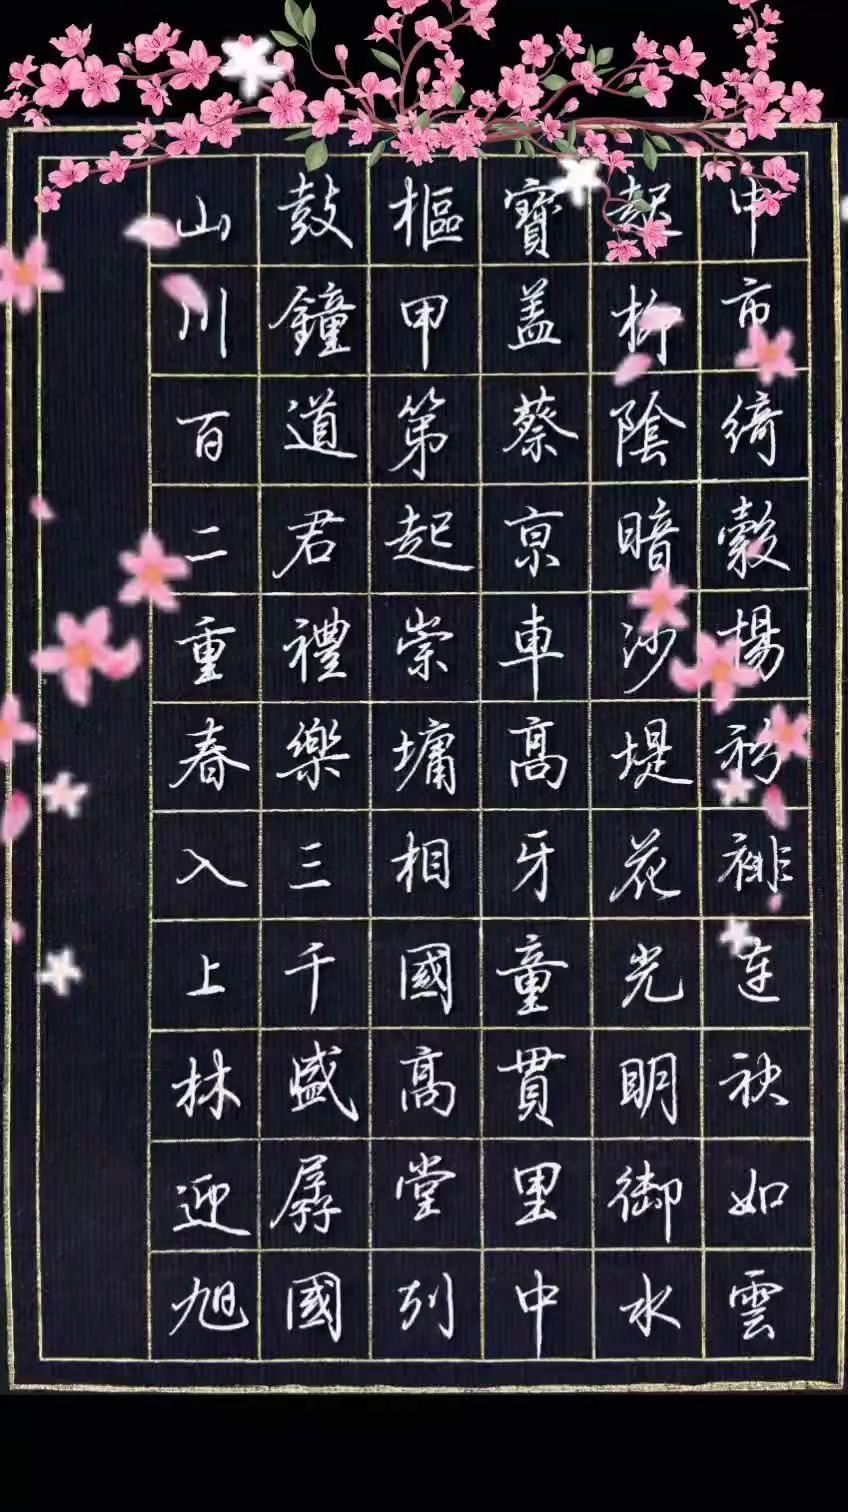 中市綺縠揚衫裶連袂如雲
起柳陰暗沙堤花光明御水
寶蓋蔡京車高牙童貫里中
樞甲第起崇墉相國高堂列
鼓鐘道君禮樂三千盛孱國
山川百二重春入上林迎旭